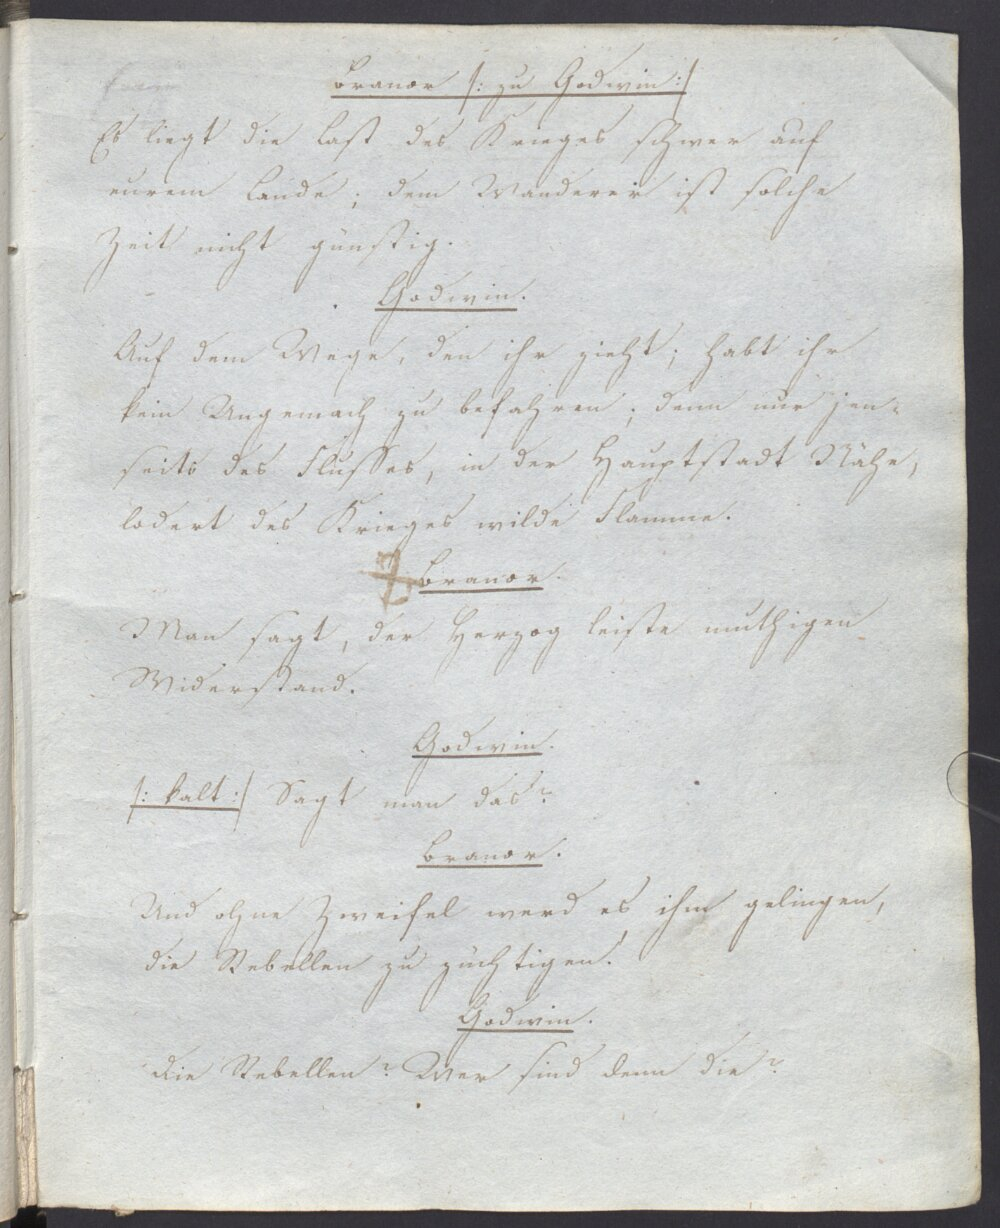 Branor /: zu Godwin :/
Es liegt die Last des Krieges schwer auf
eurem Lande; dem Wanderer ist solche
Zeit nicht günstig.
Godwin.
Auf dem Wege, den ihr zieht; habt ihr
kein Ungemach zu befahren, denn nur jen-
seits des Flusses, in der Hauptstadt Nähe,
lodert des Krieges wilde Flamme.
Branor.
Man sagt, der Herzog leiste muthigen
Widerstand.
Godwin.
/: kalt :/ Sagt man das?
Branor.
Und ohne Zweifel werd es ihm gelingen,
die Rebellen zu züchtigen.
Godwin.
Die Rebellen? Wer sind denn die?